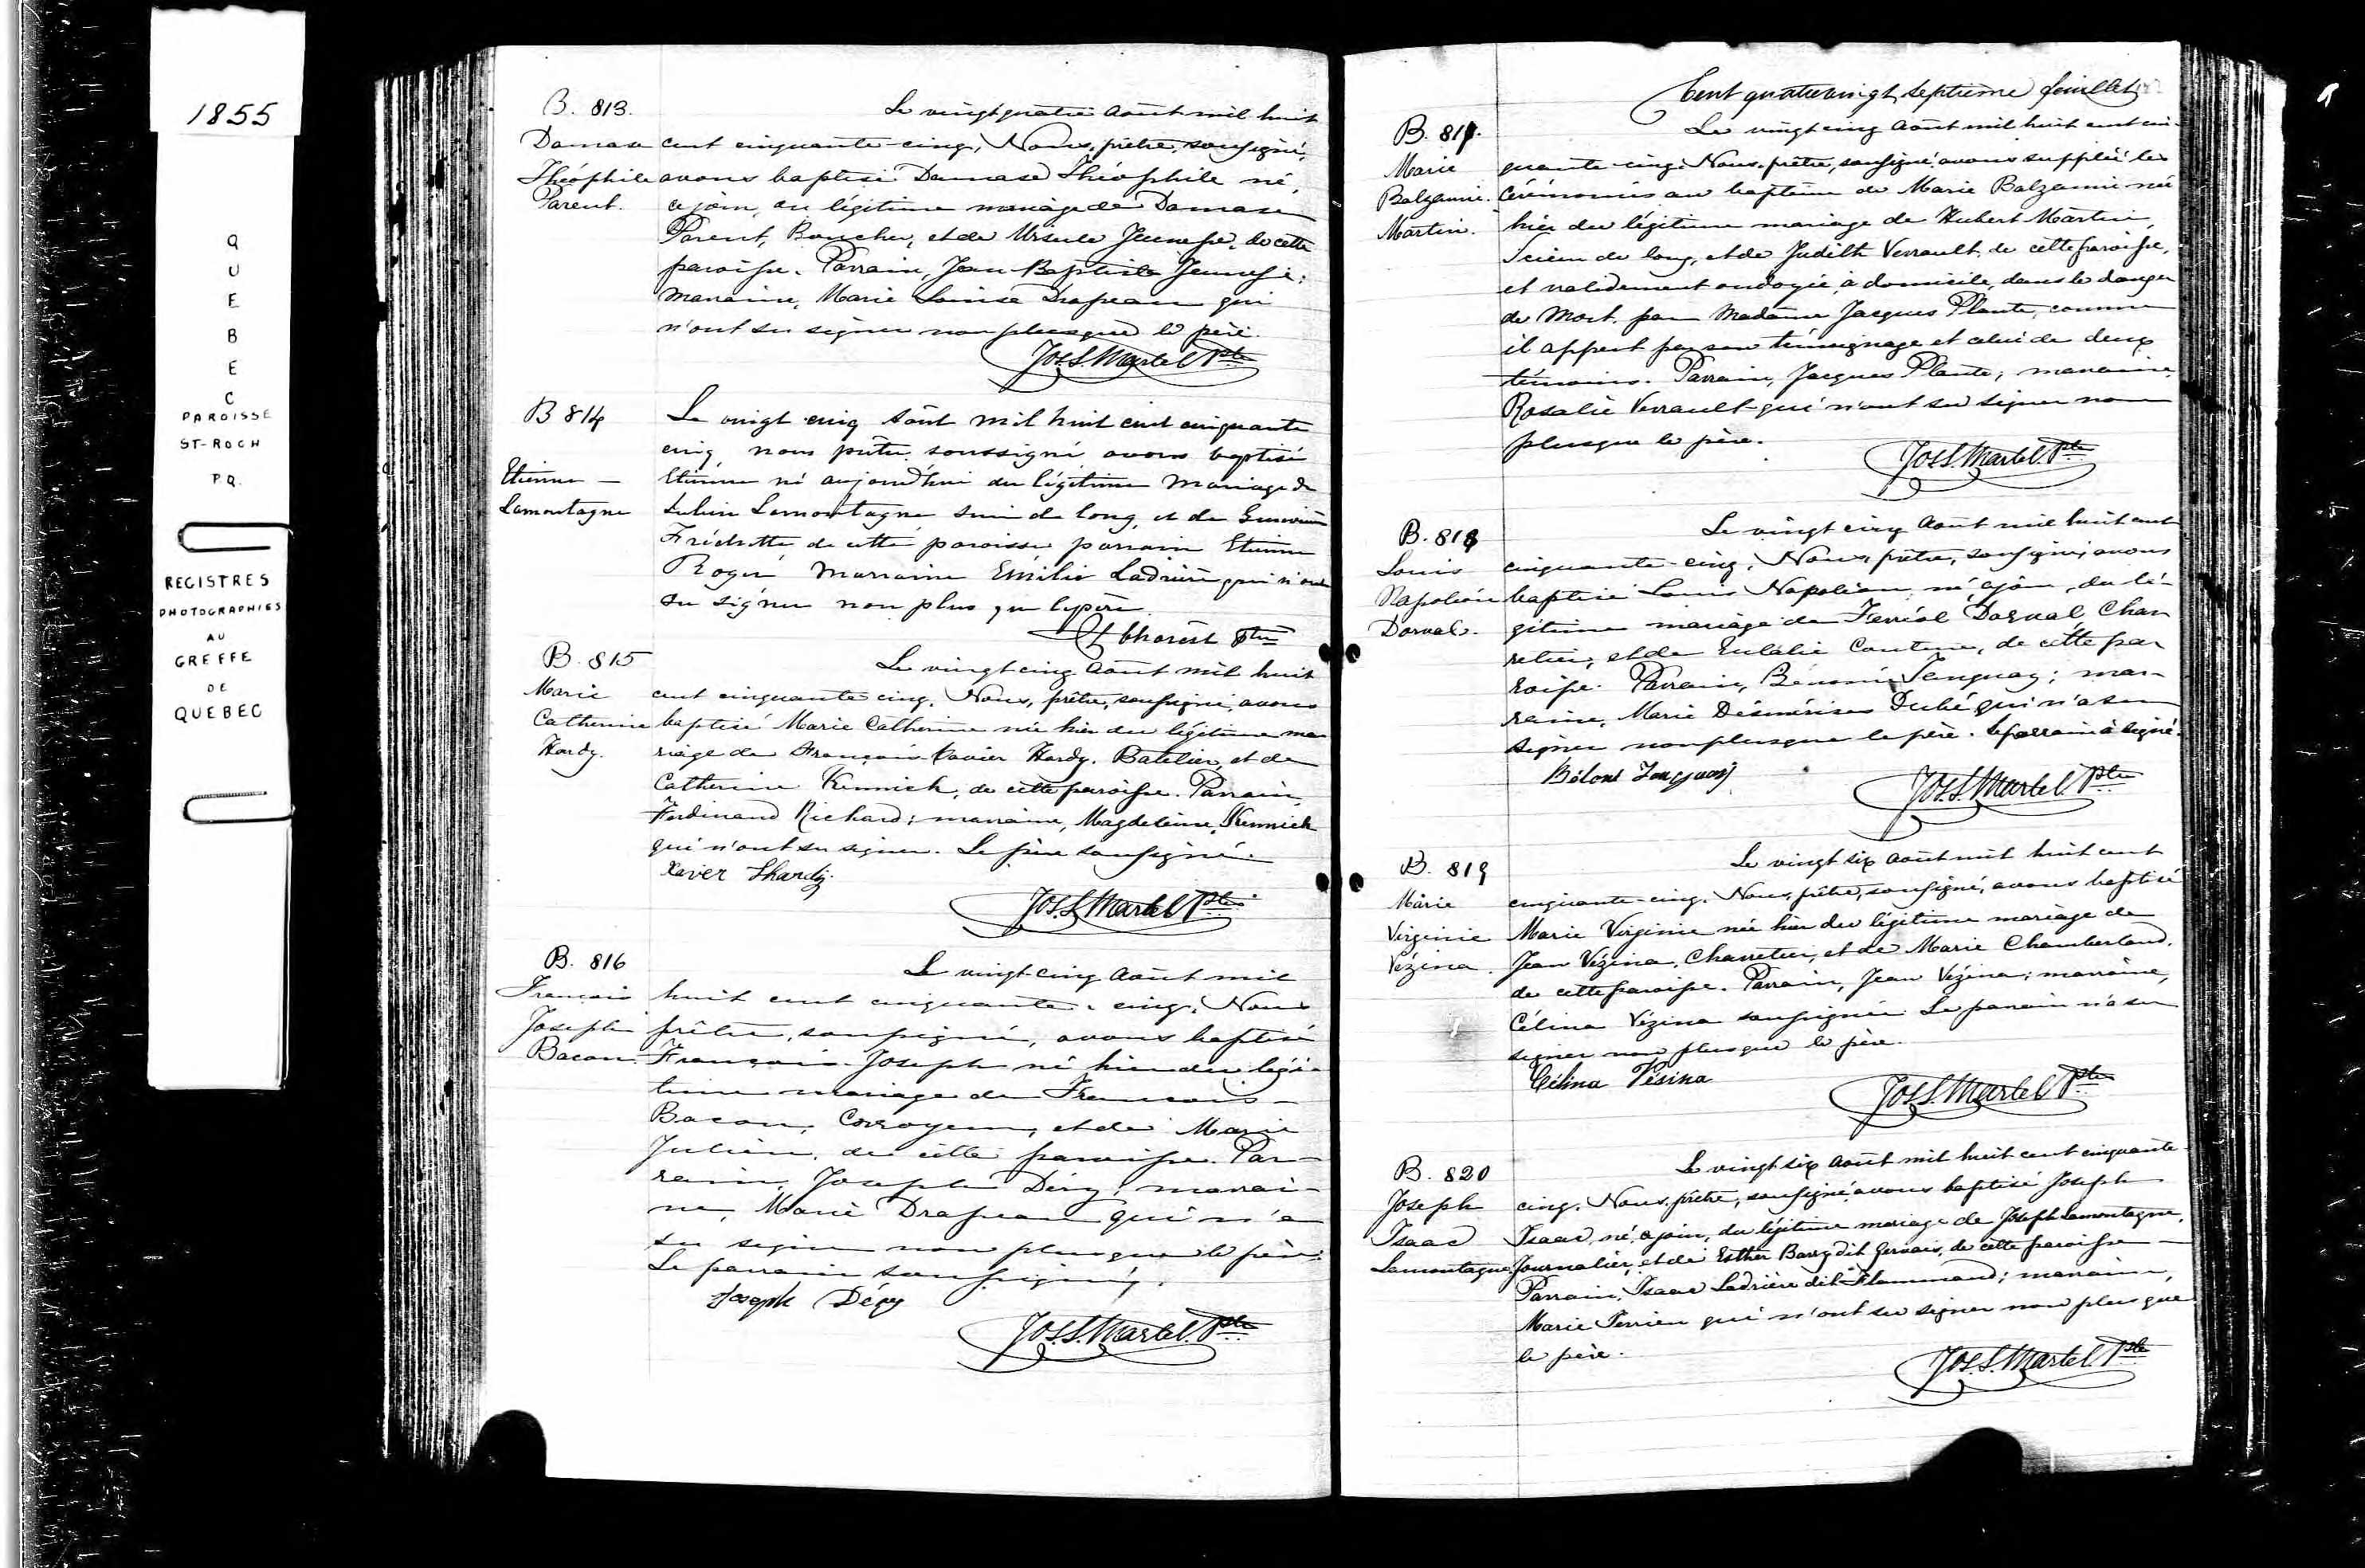 1855
Q
U
E
B
E
C
PAROISSE
ST-ROCH
P.Q.
REGISTRES
PHOTOGRAPHIÉS
AU
GREFFE
DE
QUEBEC
B. 813.
Damase
Théophile
Parent.
Le vingt quatre août mil huit
cent cinquante-cinq, Nous, prêtre, soussigné,
avons baptisé Damase Théophile né,
ce jour, du légitime mariage de Damase
Parent, Boucher, et de Ursule Jeunesse, de cette
paroisse. Parrain, Jean-Baptiste Jeunesse;
marraine, Marie Louise Drapeau qui
n'ont su signer non plus que le père.
Jos. S. Martel Ptre
B 814
Etienne —
Lamontagne
Le vingt cinq Août mil huit cent cinquante
cinq, nous prêtre soussigné avons baptisé
Etienne né aujourd'hui du légitime Mariage de
Lamontagne de long, et de
Fréchette de cette paroisse parrain Etienne
Roger Marraine Emilie Ladrière qui n'ont
su signer non plus que le père.
Charest Ptre
B. 815
Marie
Catherine
Hardy.
Le vingt cinq août mil huit
cent cinquante cinq. Nous, prêtre, soussigné, avons
baptisé Marie Catherine née hier du légitime ma-
riage de François-Xavier Hardy, Batelier, et de
Catherine Kinnich, de cette paroisse. Parrain,
Ferdinand Richard; marraine, Magdeleine Kinnich
qui n'ont su signer. Le père soussigné.
Xaver Hardy.
Jos. S. Martel Ptre
B. 816
François
Joseph
Bacon
Le vingt-cinq août mil
huit cent cinquante-cinq, Nous
prêtre, soussigné, avons baptisé
François-Joseph né hier du légi-
time mariage de François
Bacon, Corroyeur, et de Marie
Julien, de cette paroisse. Par-
rain, Joseph Déry; marrai-
ne, Marie Drapeau qui n'a
su signer non plus que le père.
Le parrain soussigné.
Joseph Déry
Jos. S. Martel. Ptre
Cent quatrevingt septième feuillet
B. 817.
Marie
Balzamie.
Martin.
Le vingt cinq août mil huit cent cin-
quante-cinq. Nous, prêtre, soussigné avons suppléé les
Cérémonies au baptême de Marie Balzamie née
hier du légitime mariage de Hubert Martin,
Scieur de long, et de Judith Verrault, de cette paroisse,
et validement ondoyée, à domicile, dans le danger
de Mort, par Madame Jacques Plante, comme
il appert par son témoignage et celui de deux
témoins. Parrain, Jacques Plante; marraine,
Rosalie Verrault qui n'ont su signer non
plus que le père.
Jos. S. Martel. Ptre
B. 818
Louis
Napoléon
Dorval.
Le vingt cinq août mil huit cent
cinquante-cinq, Nous, prêtre, soussigné, avons
baptisé Louis Napoléon, né, ce jour, du lé-
gitime mariage de Ferréol Dorval, Char-
retier, et de Eulalie Couture, de cette pa-
roisse. Parrain, Bénoni Tanguay; mar-
raine, Marie Desmérises Dubé qui n'a su
signer non plus que le père. Le parrain a signé.
Jos. S. Martel. Ptre
B. 819
Marie
Virginie
Vézina.
Le vingt six août mil huit cent
cinquante-cinq. Nous, prêtre, soussigné, avons baptisé
Marie Virginie née hier du légitime mariage de
Jean Vézina, Charretier, et de Marie Chamberland,
de cette paroisse. Parrain, Jean Vézina; marraine,
Célina Vézina soussignée. Le parrain n'a su
signer non plus que le père.
Célina Vésina
Jos. S. Martel Ptre
B. 820
Joseph
Isaac
Lamontagne.
Le vingt six août mil huit cent cinquante-
cinq. Nous, prêtre, soussigné avons baptisé Joseph
Isaac, né, ce jour, du légitime mariage de Joseph Lamontagne,
Journalier, et de Esther Baug dit Gervais, de cette paroisse —
Parrain, Isaac Ladrière dit Flammand; marraine,
Marie Perrien qui n'ont su signer non plus que
le père.
Jos. S. Martel Ptre